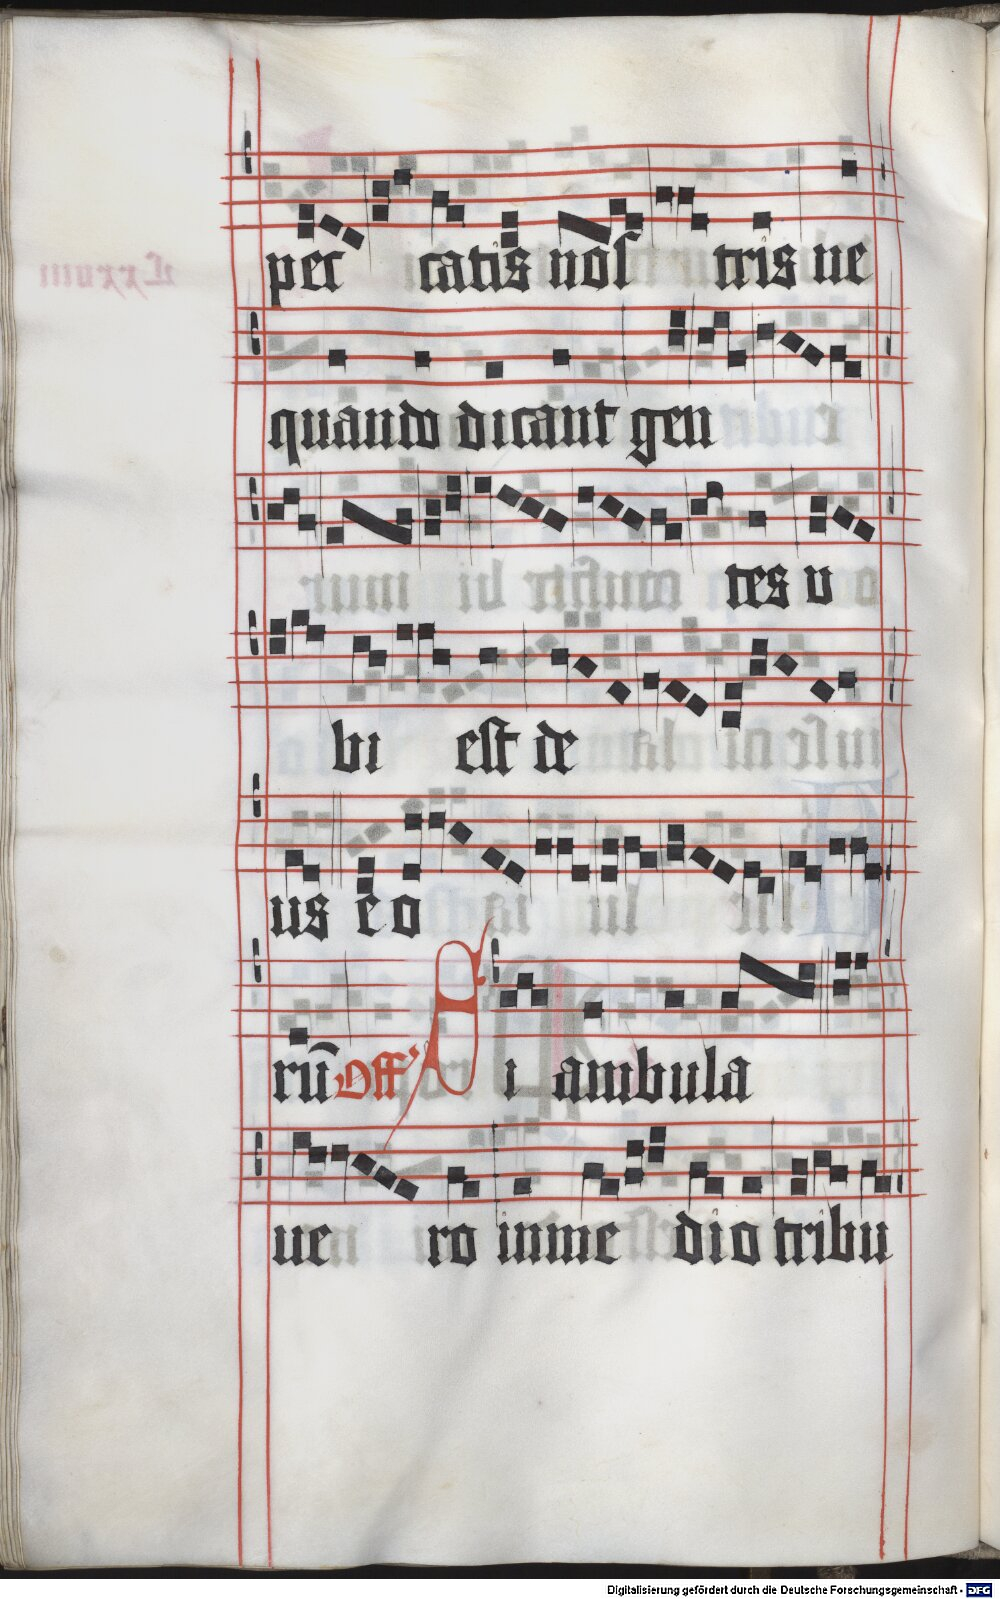 pec catis nos tris ne
quando dicant gen
tes v
bi est de
us e o
rū Off' Si ambula
ue ro inme dio tribu
Digitalisierung gefördert durch die Deutsche Forschungsgemeinschaft - DFG